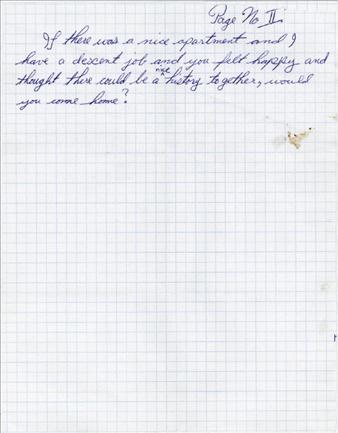 Page No II
If there was a nice apartment and I
have a descent job and you felt happy and
thought there could be a nice history together, would
you come home?